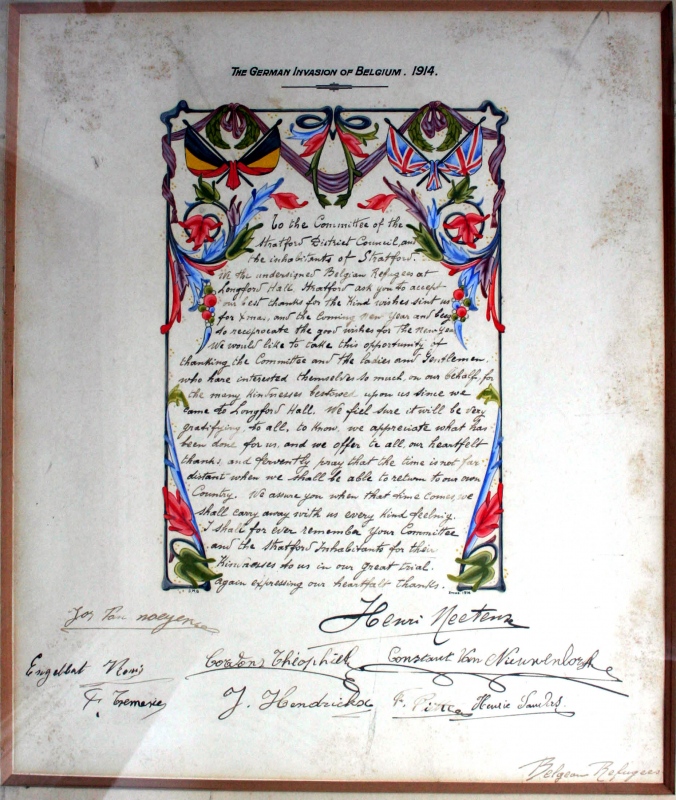 THE GERMAN INVASION OF BELGIUM. 1914.
To the Committee of the
Stratford District Council, and
the inhabitants of Stratford.
We the undersigned Belgian Refugees at
Longford Hall. Stratford ask you to accept
our best thanks for the Kind wishes sint us
for Xmas, and the Coming New Year and beg
to reciprocate the good wishes for the New year
We would like to take this opportunity of
thanking the Committee and the ladies and Gentlemen.
who have interested themselves so much, on our behalf, for
the many Kindnesses bestowed upon us since we
came to Longford Hall. We fiel sure it will be very
gratifying to all, to Know, we appreciate what has
been done for us, and we offer to all, our heartfelt
thanks, and fervently pray that the time is not far
distant when we shall be able to return to our own
Country. We assure you when that time comes, we
shall carry away with us every kind feelnig.
I shall for ever remember your Committee
and the Stratford Inhabitants for their
Kindnesses to us in our great trial.
Again expressing our heartfalt thanks.
Henri
Engelbert
Cordons Théophile Constant Van Nieuwenborgh
F. J. Hendrickx F. Henrie
Belgean Refugees